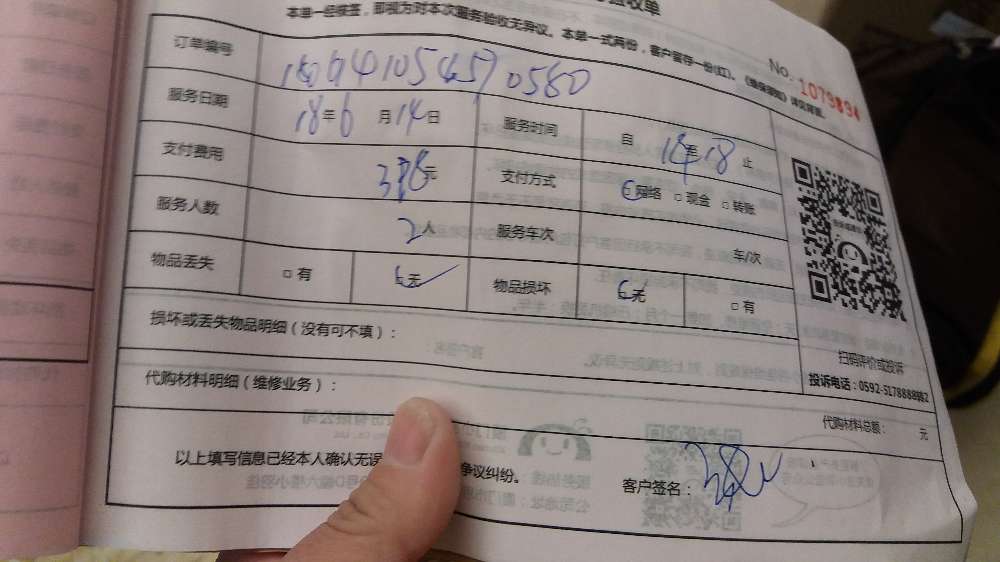 收单
本单一经接签，即视为对本次服务验收无异议。本单一式两份，客户留存一份(红)。
No. 1079894
订单编号
服务日期 18年6月14日 服务时间 自14至18止
支付费用 元 支付方式 网络 □ 现金 □ 转账
服务人数 2人 服务车次 车/次
物品丢失 □ 有 无 物品损坏 无 □ 有
损坏或丢失物品明细（没有可不填）：
扫码评价或投诉
投诉电话：0592-5178888转2
代购材料明细（维修业务）：
代购材料总额： 元
以上填写信息已经本人确认无误 争议纠纷。 客户签名：